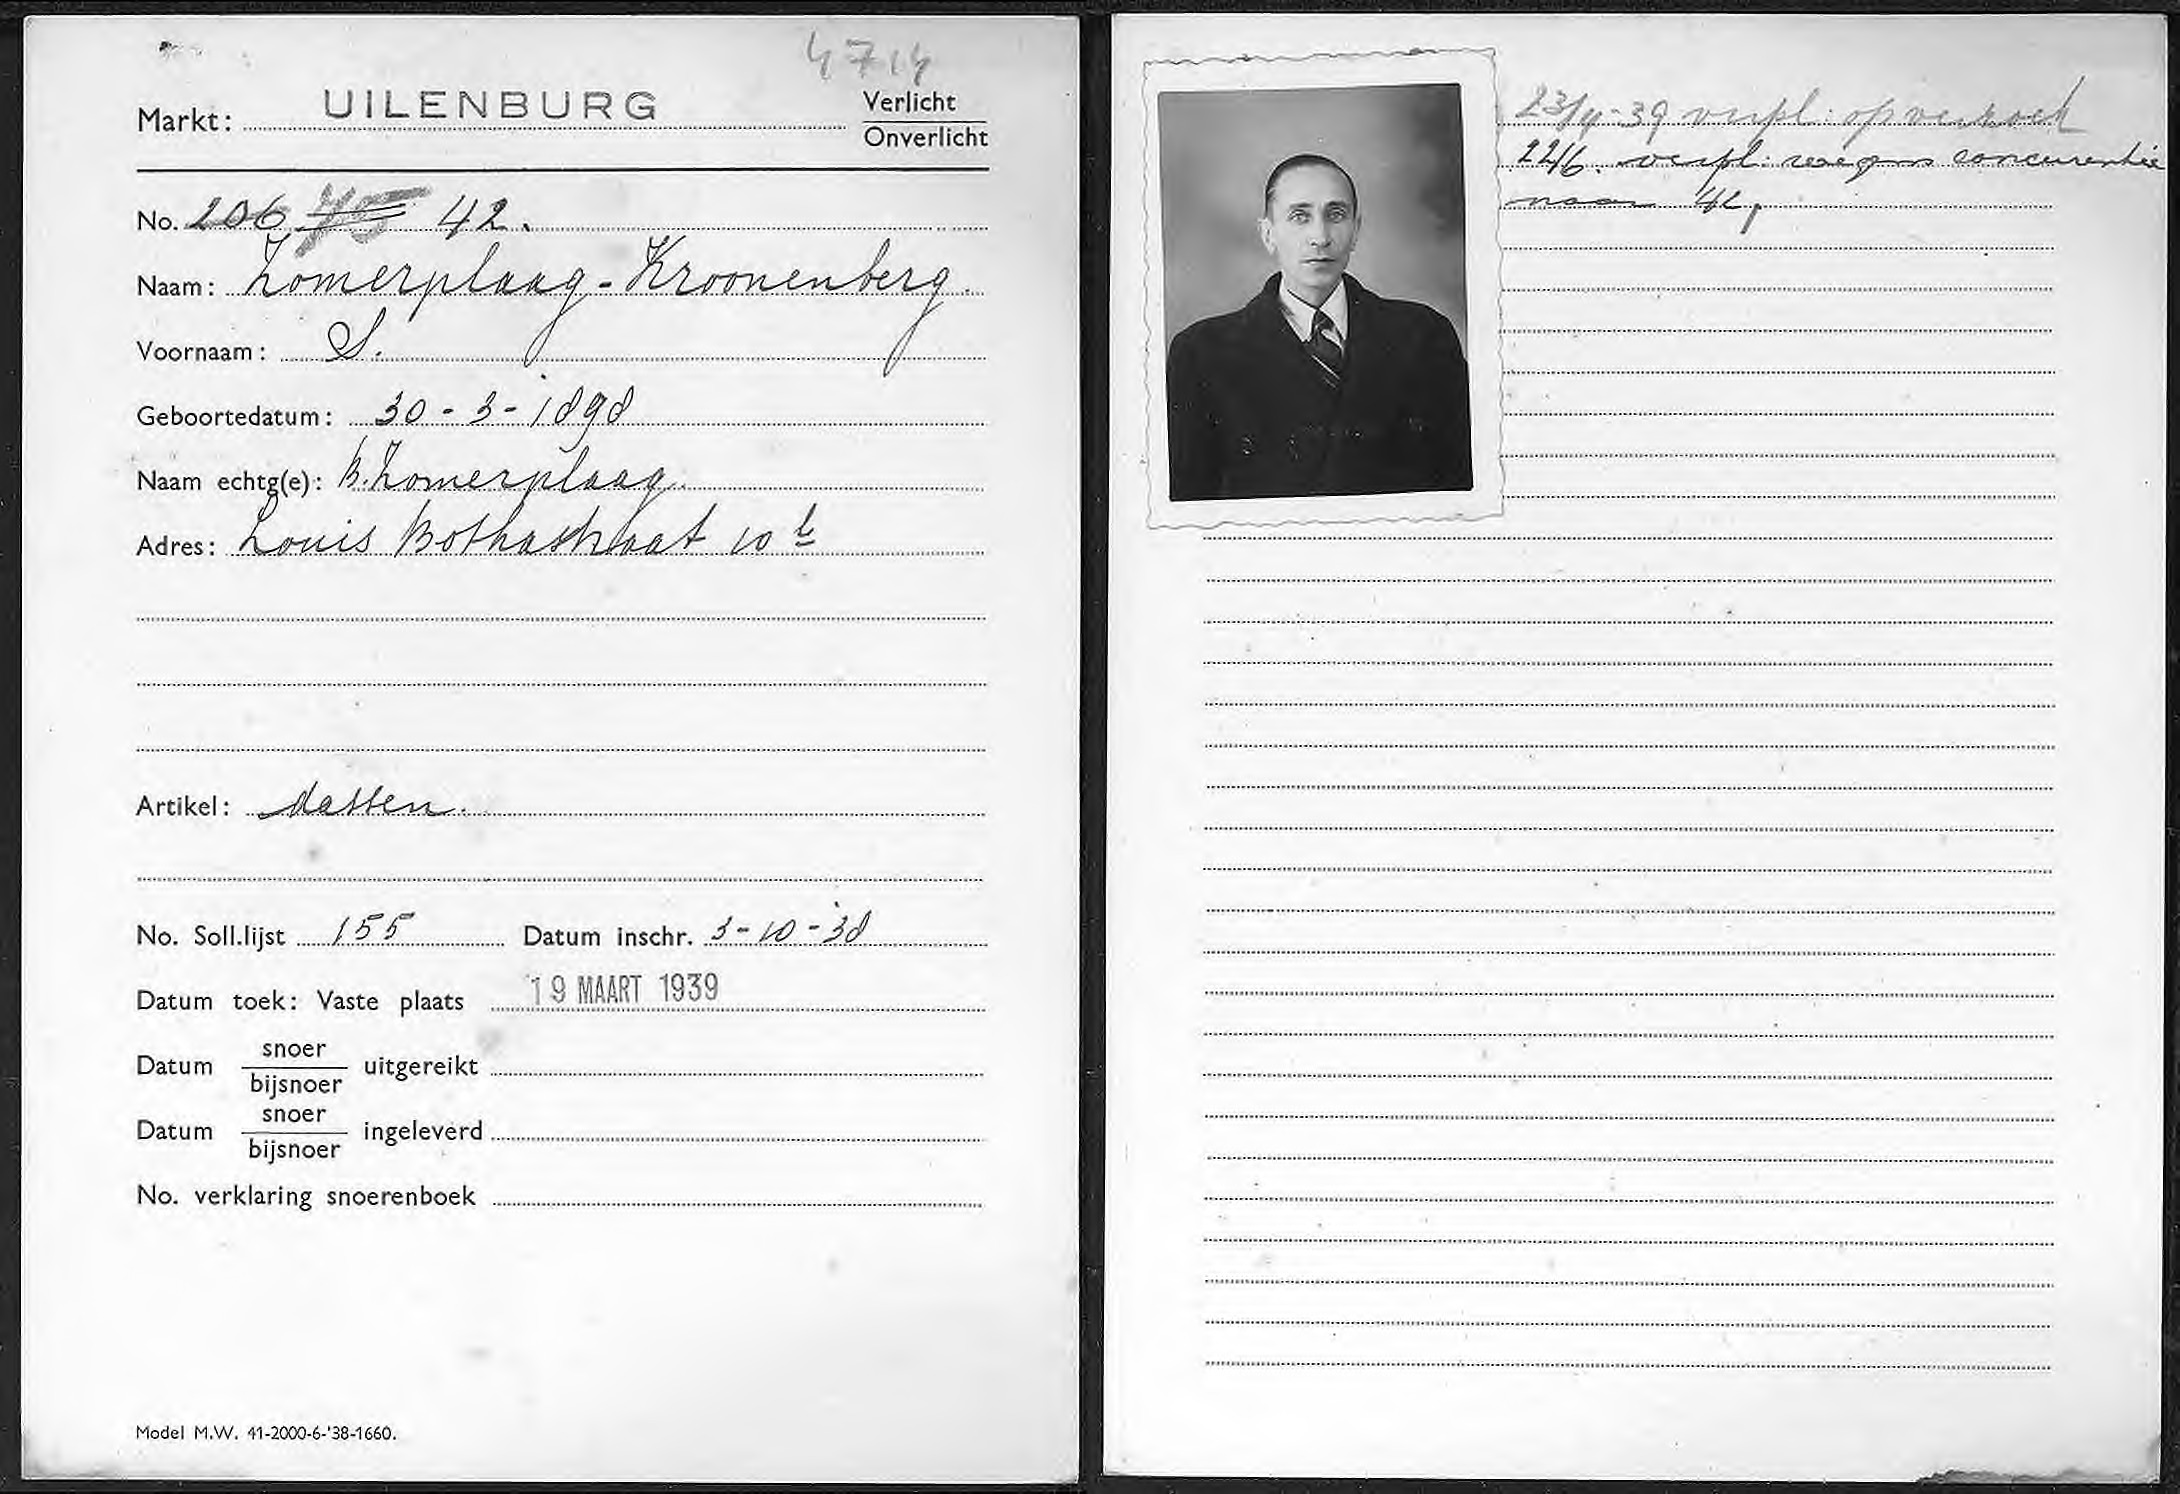 4714
Markt: UILENBURG Verlicht
Onverlicht
No. 206 75 42.
Naam: Zomerplaag-Kroonenberg.
Voornaam: S.
Geboortedatum: 30-3-1898
Naam echtg(e): B. Zomerplaag.
Adres: Louis Bothastraat 10 h
Artikel: dassen.
No. Soll.lijst 155 Datum inschr. 3-10-38
Datum toek: Vaste plaats 19 MAART 1939
Datum snoer uitgereikt
bijsnoer
Datum snoer ingeleverd
bijsnoer
No. verklaring snoerenboek
Model M.W. 41-2000-6-'38-1660.
23/4-39 verpl. op verzoek
22/6. verpl. wegens concurentie
naar 42,